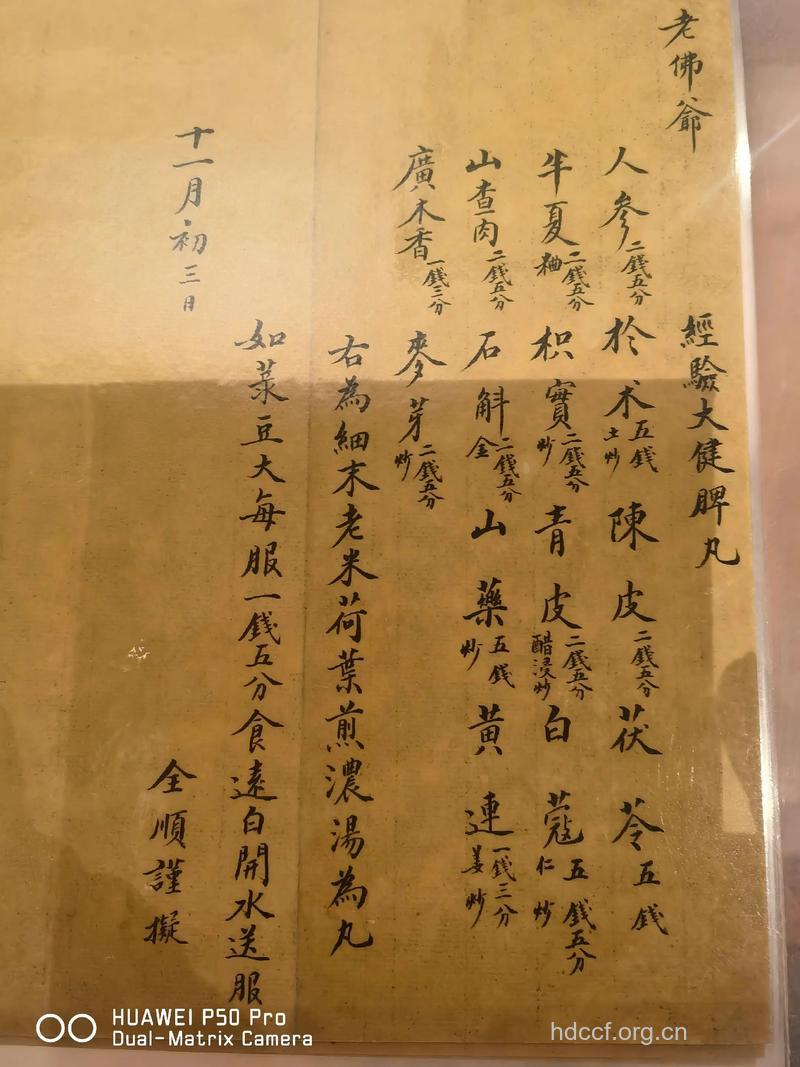 老佛爺
經驗大健脾丸
人參二錢五分 於术五錢土炒 陳皮二錢五分 茯苓五錢
半夏二錢五分粬 枳實二錢五分炒 青皮二錢五分醋浸炒 白蔻五錢五分仁炒
山查肉二錢五分 石斛二錢五分金 山藥五錢炒 黃連一錢三分姜炒
廣木香一錢三分 麥芽二錢五分炒
右為細末老米荷葉煎濃湯為丸
如菉豆大每服一錢五分食遠白開水送服
十一月初三日
全順謹擬
HUAWEI P50 Pro
Dual-Matrix Camera
hdccf.org.cn